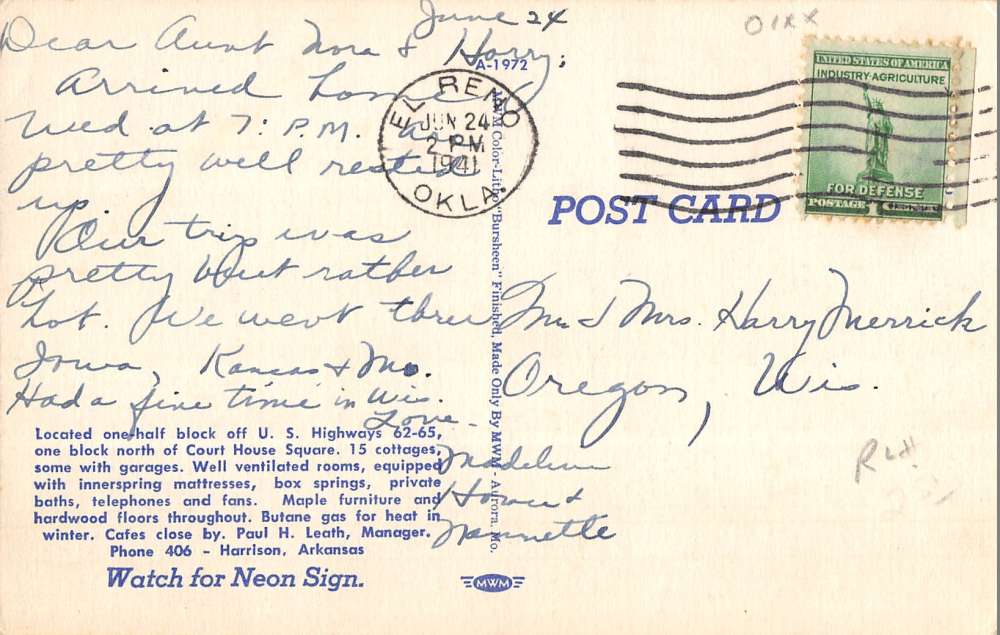 June 24
Dear Aunt Nora & Harry:
Arrived home
Wed at 7: P.M.
pretty well rested
up.
Our trip was
pretty but rather
hot. We went thru
Iowa, Kansas & Mo.
Had a fine time in Wis.
Love -
Madeline
Howard
Nannette
A-1972
EL RENO
JUN 24
2 PM
1941
OKLA.
UNITED STATES OF AMERICA
INDUSTRY·AGRICULTURE
FOR DEFENSE
POSTAGE 1¢
POST CARD
Mr & Mrs. Harry Merrick
Oregon, Wis.
MWM Color-Litho "Bursheen" Finished, Made Only By MWM - Aurora, Mo.
Located one-half block off U. S. Highways 62-65,
one block north of Court House Square. 15 cottages,
some with garages. Well ventilated rooms, equipped
with innerspring mattresses, box springs, private
baths, telephones and fans. Maple furniture and
hardwood floors throughout. Butane gas for heat in
winter. Cafes close by. Paul H. Leath, Manager.
Phone 406 - Harrison, Arkansas
Watch for Neon Sign.
MWM